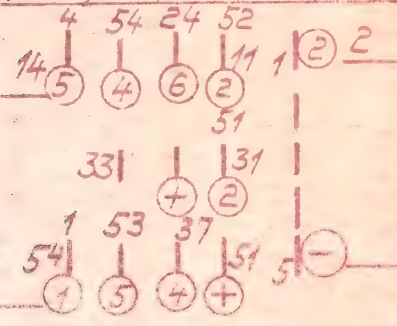 4 54 24 52
14 11 1 2 2
5 4 6 2
51
33 31
+ 2
1 53 37
54 51 5 −
1 5 4 +